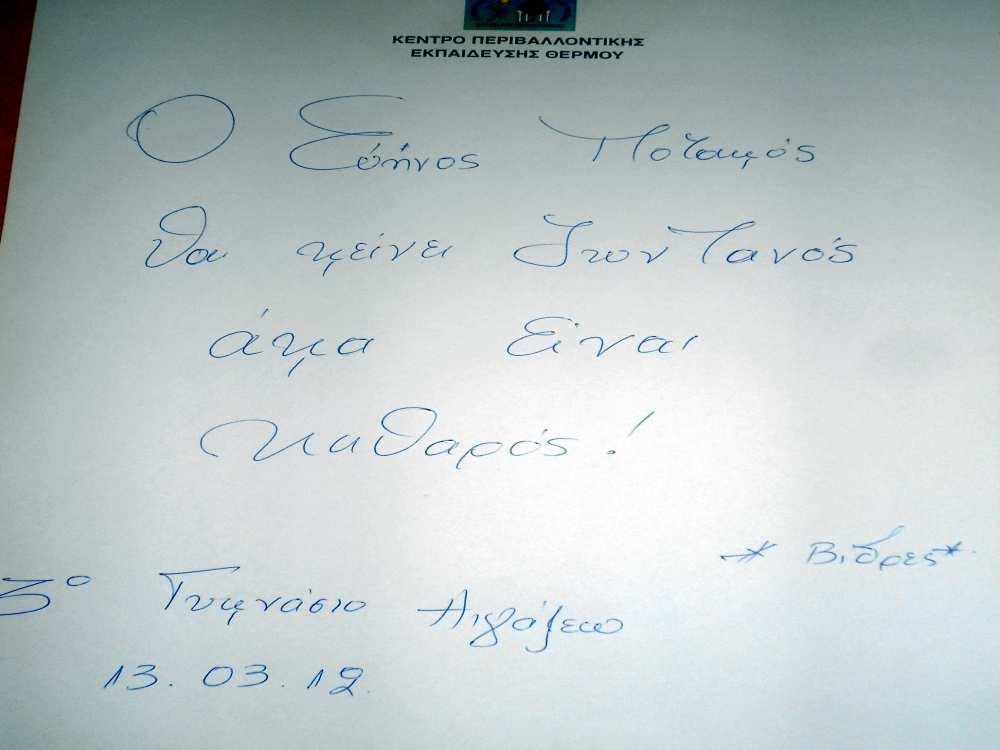 ΚΕΝΤΡΟ ΠΕΡΙΒΑΛΛΟΝΤΙΚΗΣ
ΕΚΠΑΙΔΕΥΣΗΣ ΘΕΡΜΟΥ
Ο Εύηνος Ποταμός
θα μείνει Ζωντανός
άμα είναι
καθαρός!
* Βίδρες *
3ο Γυμνάσιο
13.03.12.